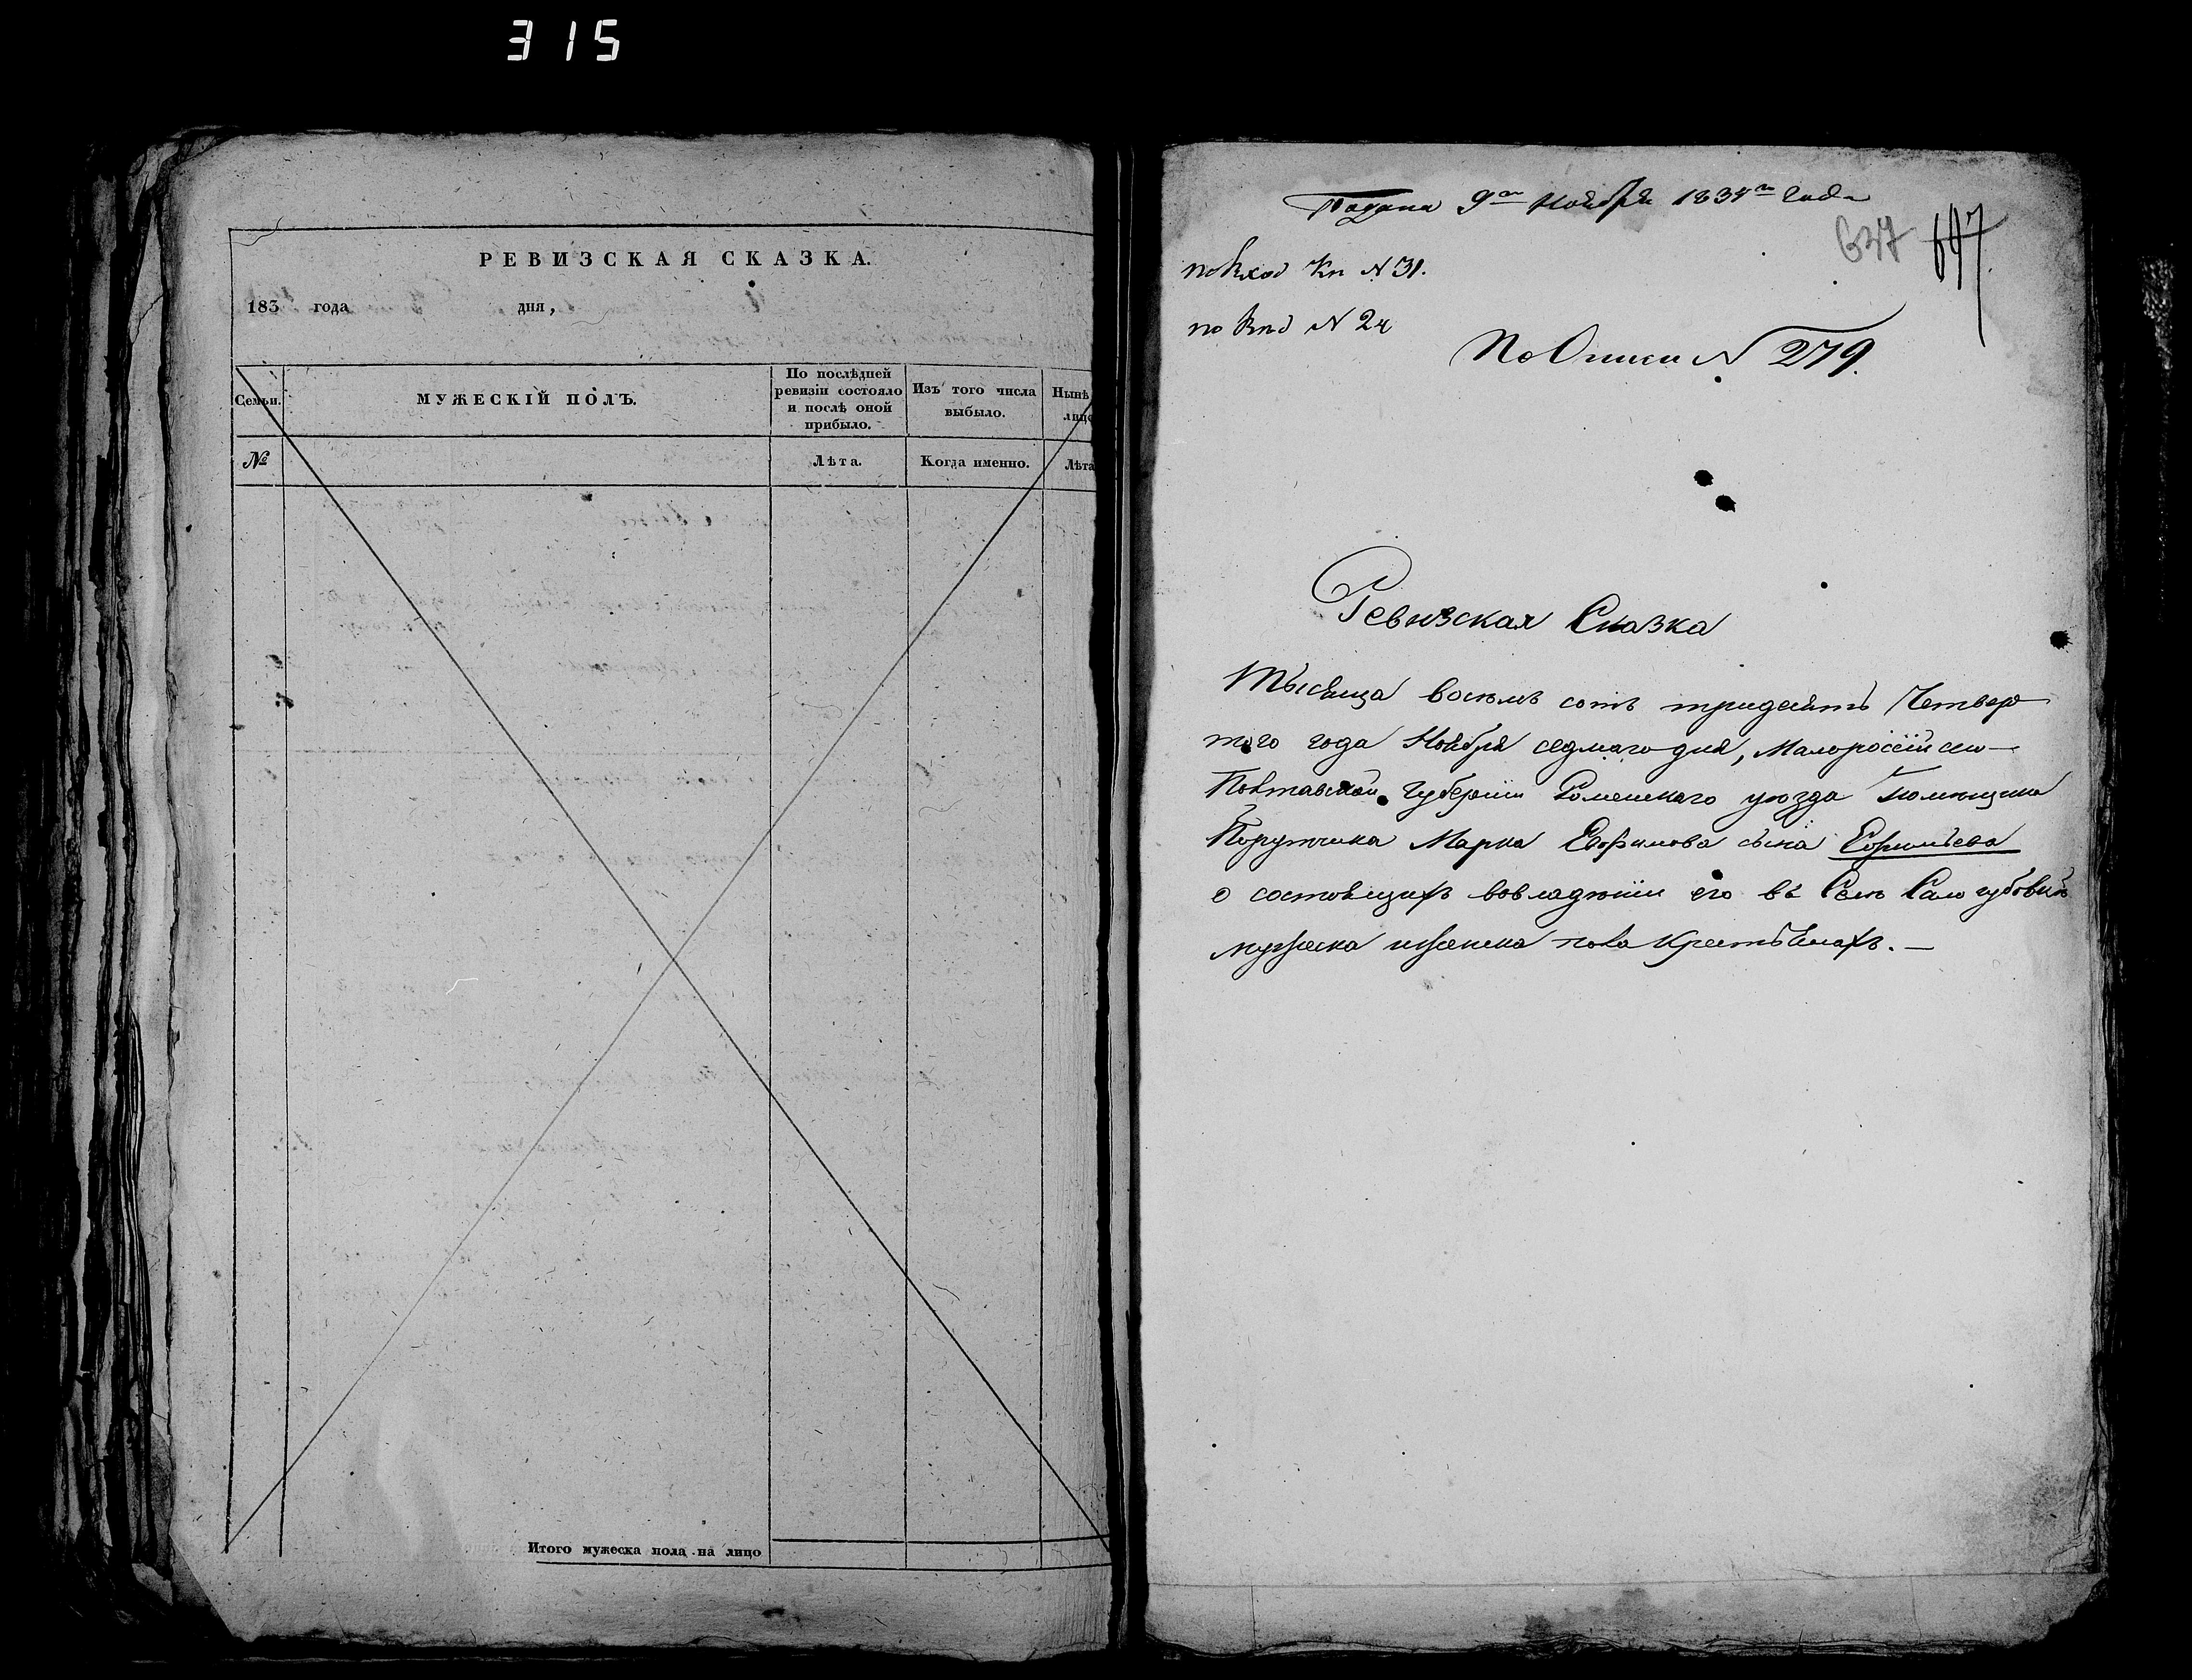 315
РЕВИЗСКАЯ СКАЗКА.
183 года дня,
Семьи.
МУЖЕСКІЙ ПОЛЪ.
По послѣдней
ревизіи состояло
и послѣ оной
прибыло.
Изъ того числа
выбыло.
Нынѣ
лицо
№
Лѣта.
Когда именно.
Лѣта
Итого мужеска пола на лицо
Подана 9го Ноября 1834го года
647 647
по Вход Кн N 31.
по N 24
По Описи N 279.
Ревизская Сказка
Тысяща восемь сотъ тридцять Четвер
того года Ноября седмаго дня, Малороссійской
Полтавской Губерніи Роменскаго уезда Помещика
Поручика Марка Евфимова сына
о состоящихъ вовладѣніи его въ Селе
мужеска иженска пола крестьянахъ.